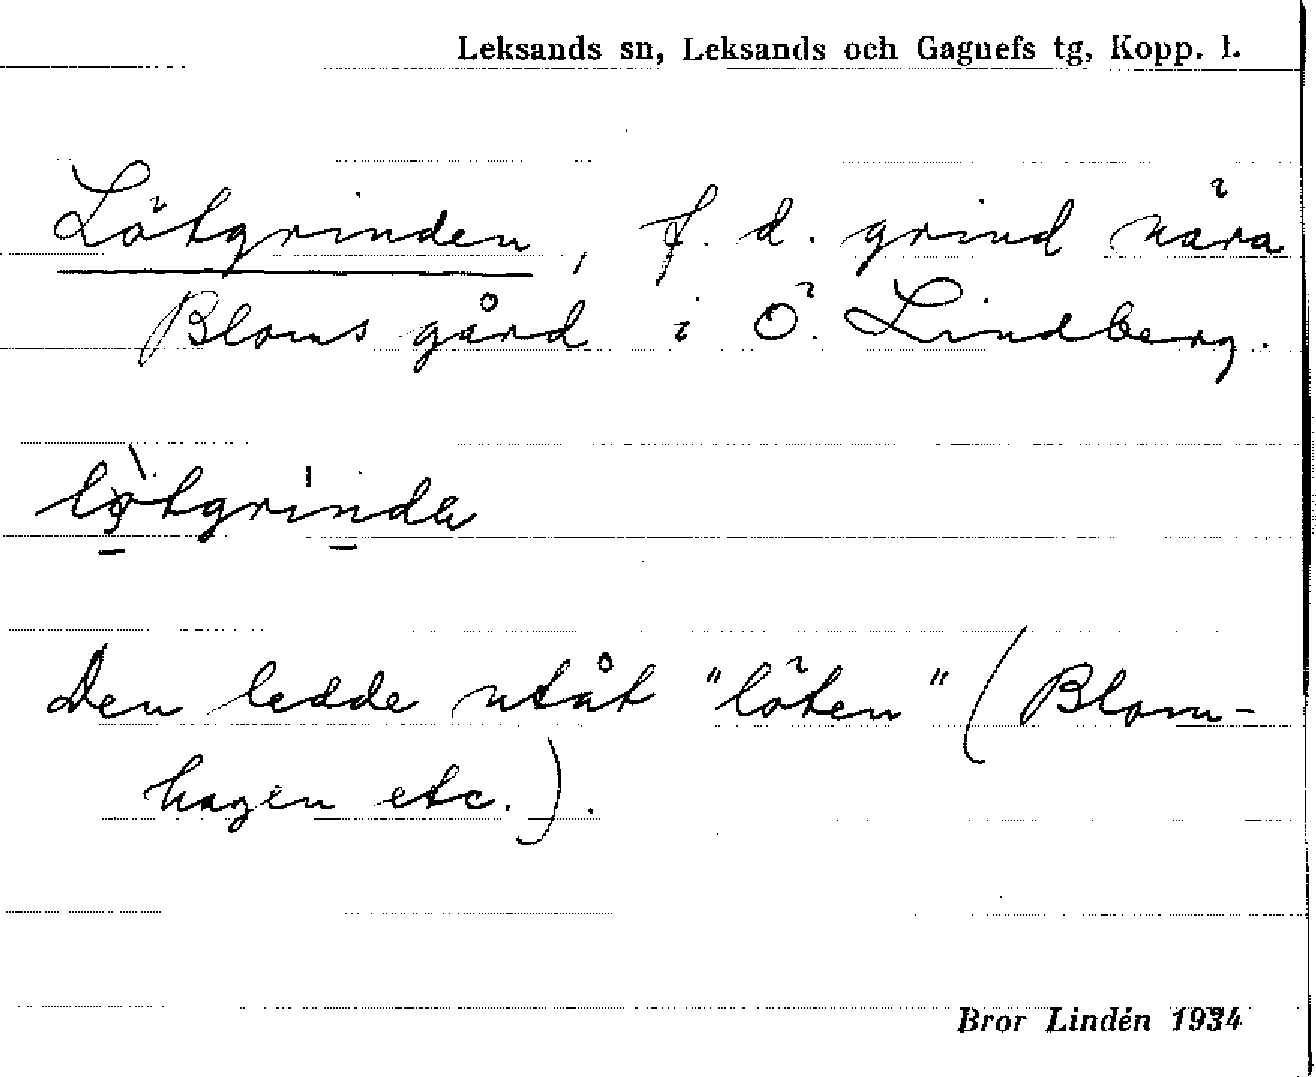 Leksands sn, Leksands och Gagnefs tg, Kopp. l.
Lötgrinden, f. d. grind nära
Bloms gård i Ö. Lindberg.
lø̀tgrinda
Den ledde utåt "löten" (Blom-
hagen etc.).
Bror Lindén 1934